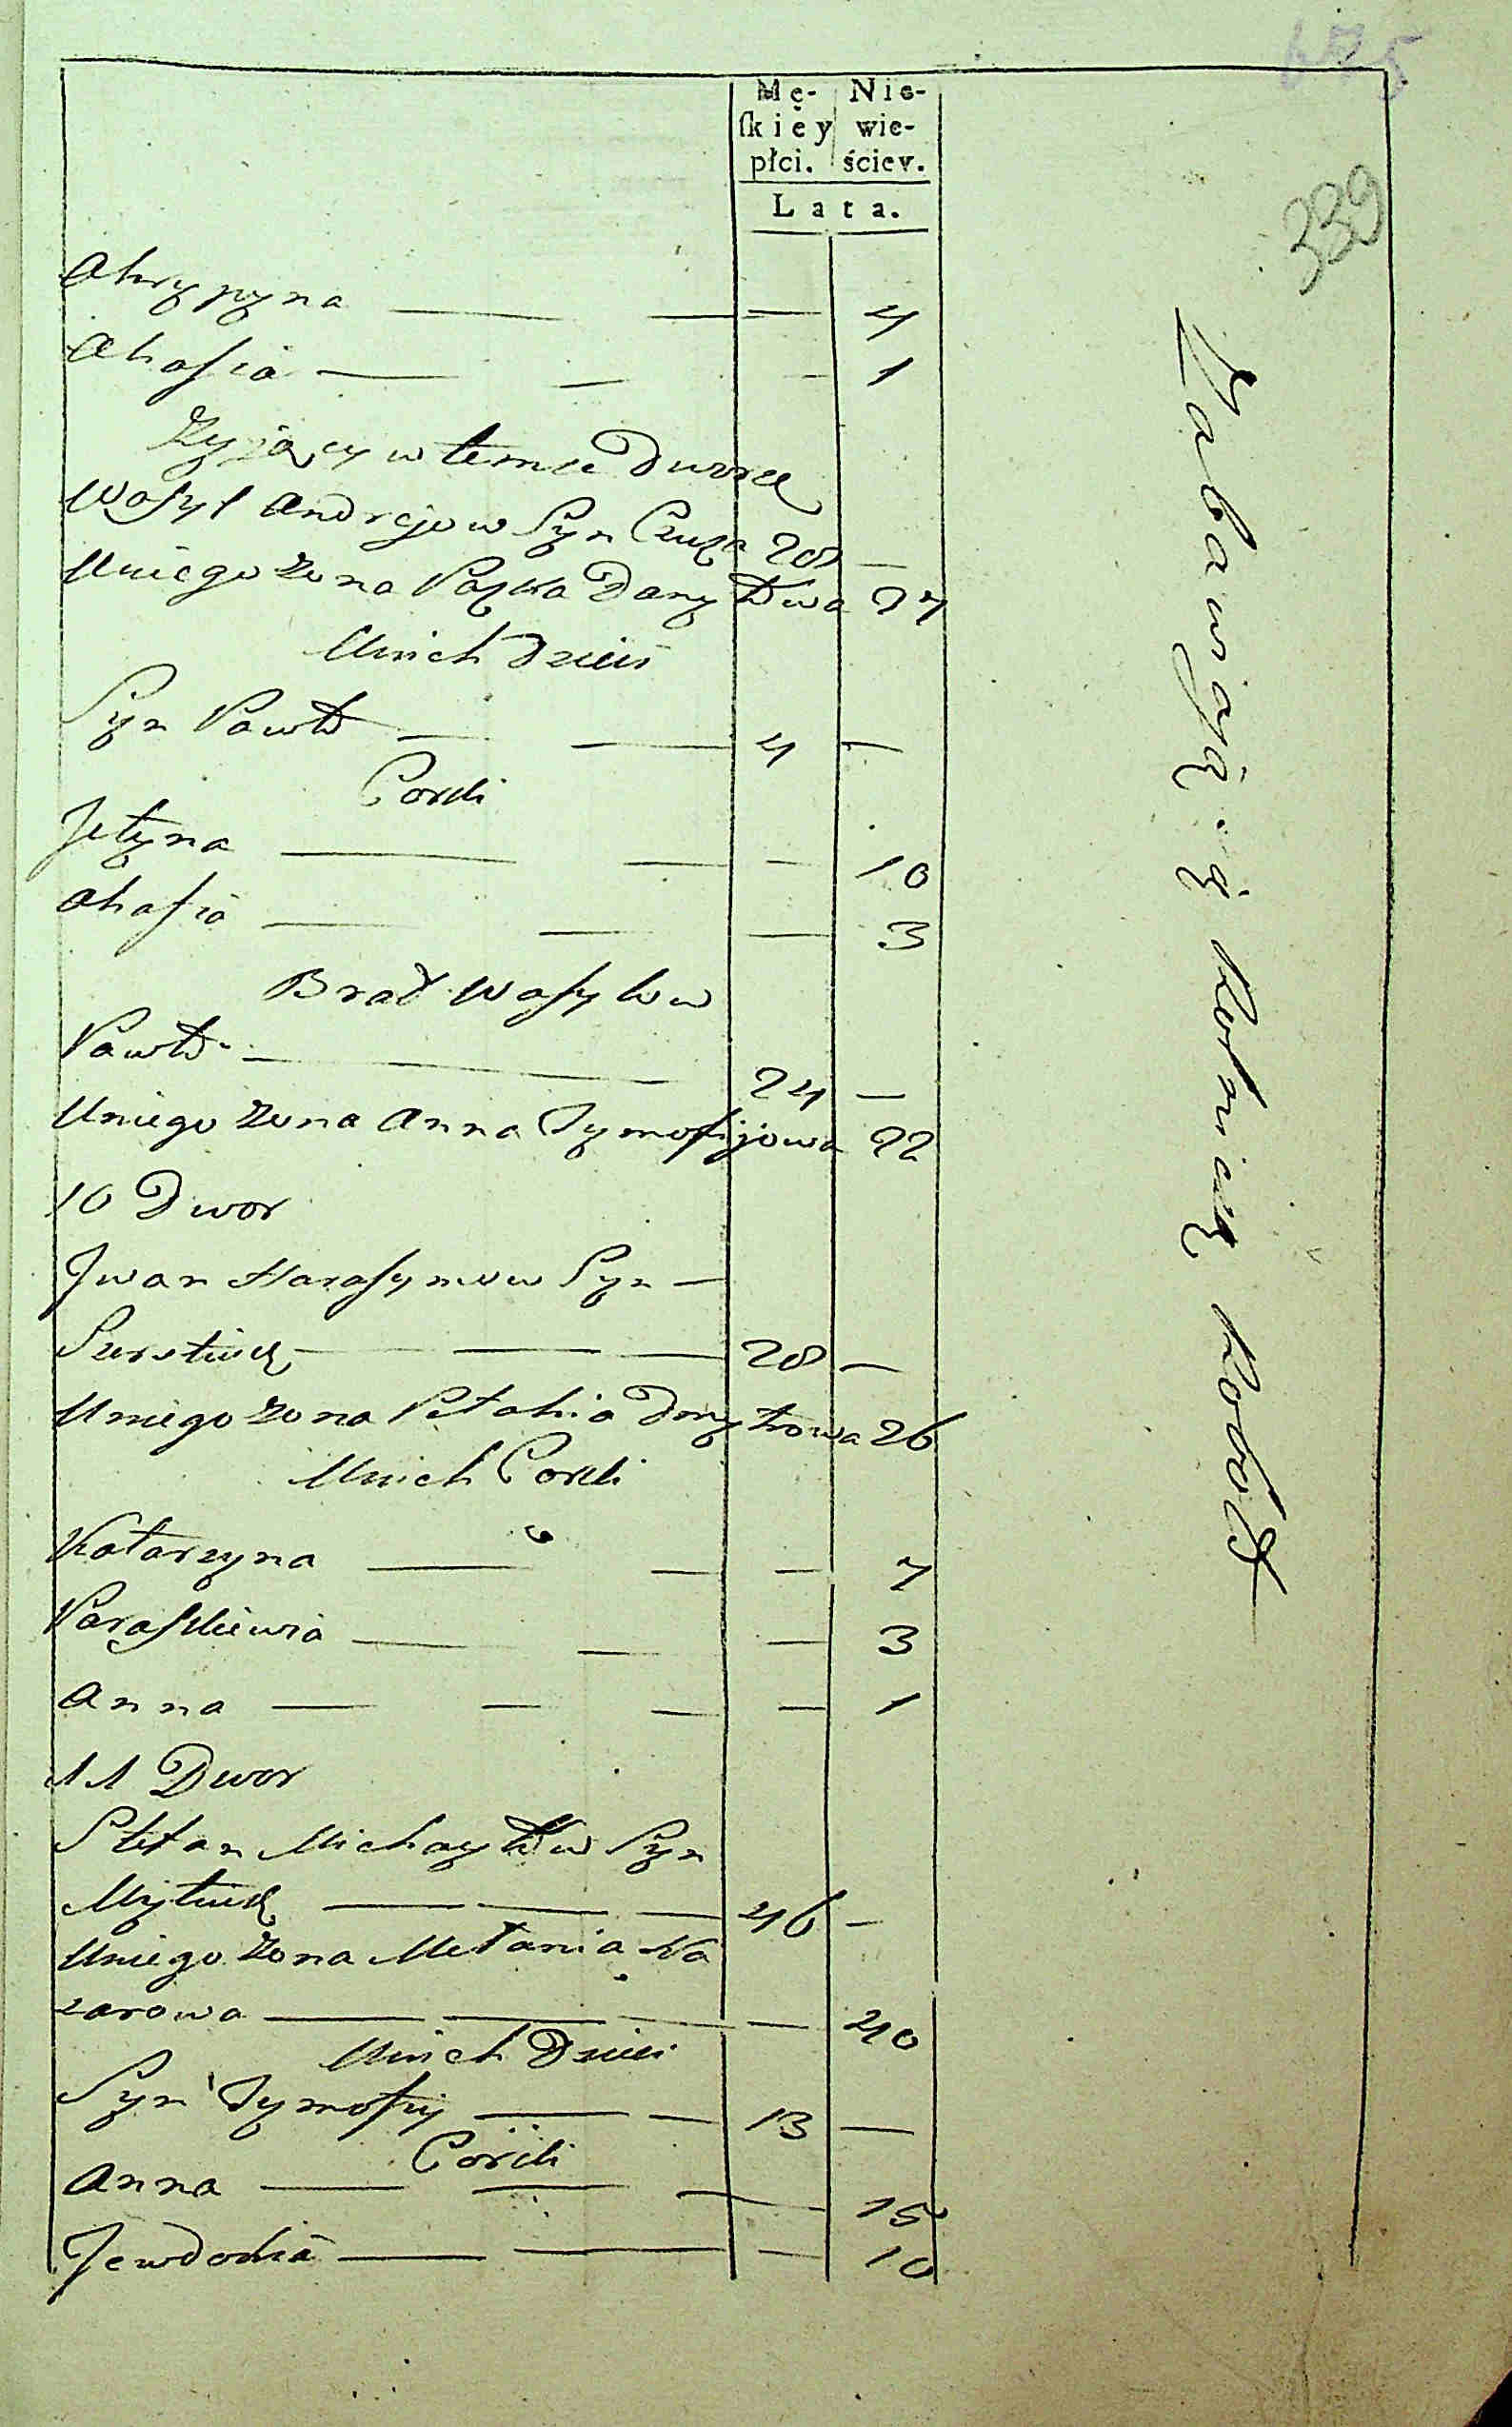 339
Mę- Nie-
ſkiey wie-
płci. ściey.
Lata.
Ahrypyna — — — 4
Ahafia — — — 1
Zyjący w temze Dworze
Wasyl Andrejow Syn 28 —
U niego żona Paska Dany łowa 27
U nich dzieci
Syn Pawło — — 4 —
Corki
Jełyna — — — 10
Ahafia — — — 3
Brat Wasylow
Pawło — — 24 —
U niego żona Anna Tymofijowa 22
10 Dwor
Jwan Harasymow Syn —
— — — 28 —
U niego żona Petahia Dmytrowa 26
U nich Corki
Katarzyna — — — 7
Paraskiewia — — — 3
Anna — — — — 1
11 Dwor
Stefan Michayłow Syn
— — — 46 —
U niego żona Mełania Na
zarowa — — — — 40
U nich Dzieci
Syn Tymofiy — — 13 —
Corki
Anna — — — 15
Jewdochia — — — 10
Zabawiają się Rolniczą Robotą